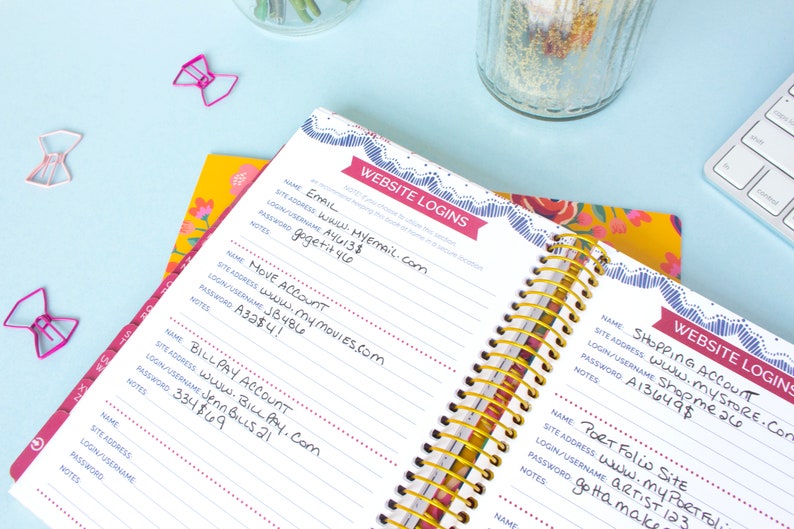 WEBSITE LOGINS
NOTE: if you choose to utilize this section,
we recommend keeping this book at home in a secure location.
NAME: Email
SITE ADDRESS: www.myemail.com
LOGIN/USERNAME: A4613$
PASSWORD: gogetit46
NOTES:
NAME: Move Account
SITE ADDRESS: www.mymovies.com
LOGIN/USERNAME: JB486
PASSWORD: A32$4!
NOTES:
NAME: Billpay Account
SITE ADDRESS: www.billpay.com
LOGIN/USERNAME: JennBills21
PASSWORD: 334$69
NOTES:
NAME:
SITE ADDRESS:
LOGIN/USERNAME:
PASSWORD:
NOTES:
WEBSITE LOGINS
NAME: Shopping Account
SITE ADDRESS: www.mystore.com
LOGIN/USERNAME: Shopme26
PASSWORD: A13649$
NOTES:
NAME: Portfolio Site
SITE ADDRESS: www.myportfl
LOGIN/USERNAME: artist123
PASSWORD: gottamake
NOTES:
NAME:
SITE ADDRESS:
caps lock
shift
control